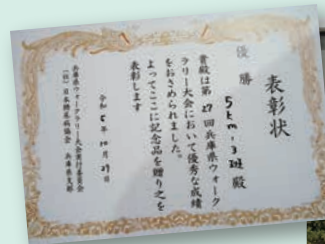 表彰状
優勝
5km，3班 殿
貴殿は第27回兵庫県ウォーク
ラリー大会において優秀な成績
をおさめられました。
よってここに記念品を贈り之を
表彰します
令和5年10月29日
兵庫県ウォークラリー大会実行委員会
(社)日本糖尿病協会 兵庫県支部